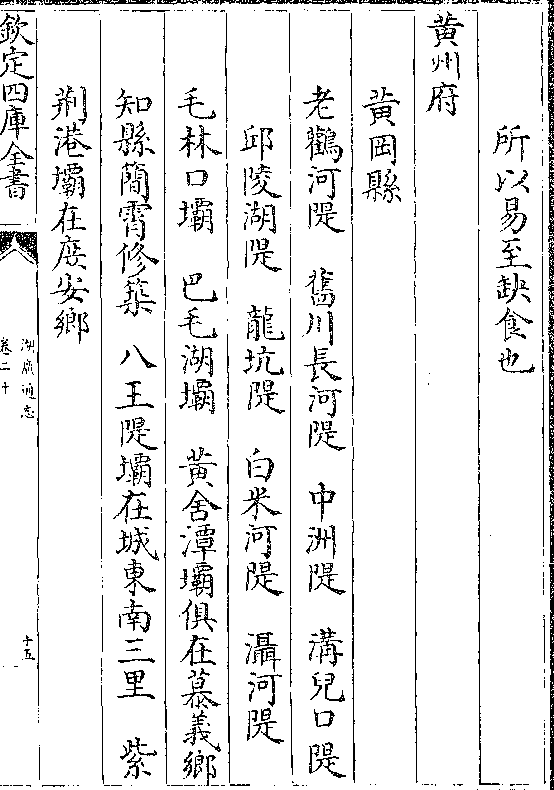 所以易至缺食也
黄州府
黄岡縣
老鸛河隄 舊川長河隄 中洲隄 溝兒口隄
邱陵湖隄 龍坑隄 白米河隄 灄河隄
毛林口壩 巴毛湖壩 黄舍潭壩俱在慕義鄉
知縣簡霄修築 八王隄壩在城東南三里 紫
荆港壩在庶安鄉
欽定四庫全書
湖廣通志
卷二十
十五